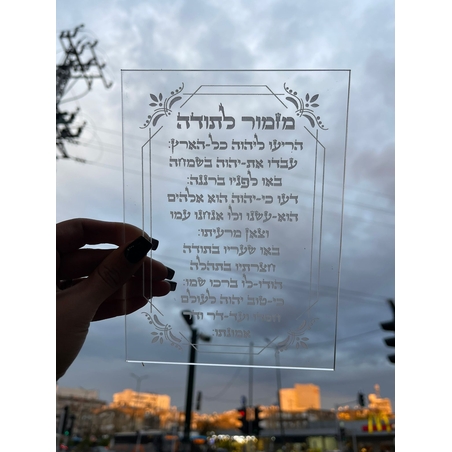 מזמור לתודה
הריעו ליהוה כל-הארץ:
עבדו את-יהוה בשמחה
באו לפניו ברננה:
דעו כי-יהוה הוא אלהים
הוא-עשנו ולו אנחנו עמו
וצאן מרעיתו:
באו שעריו בתודה
חצרתיו בתהלה
הודו-לו ברכו שמו:
כי-טוב יהוה לעולם
ועד-דר ודר
אמונתו: